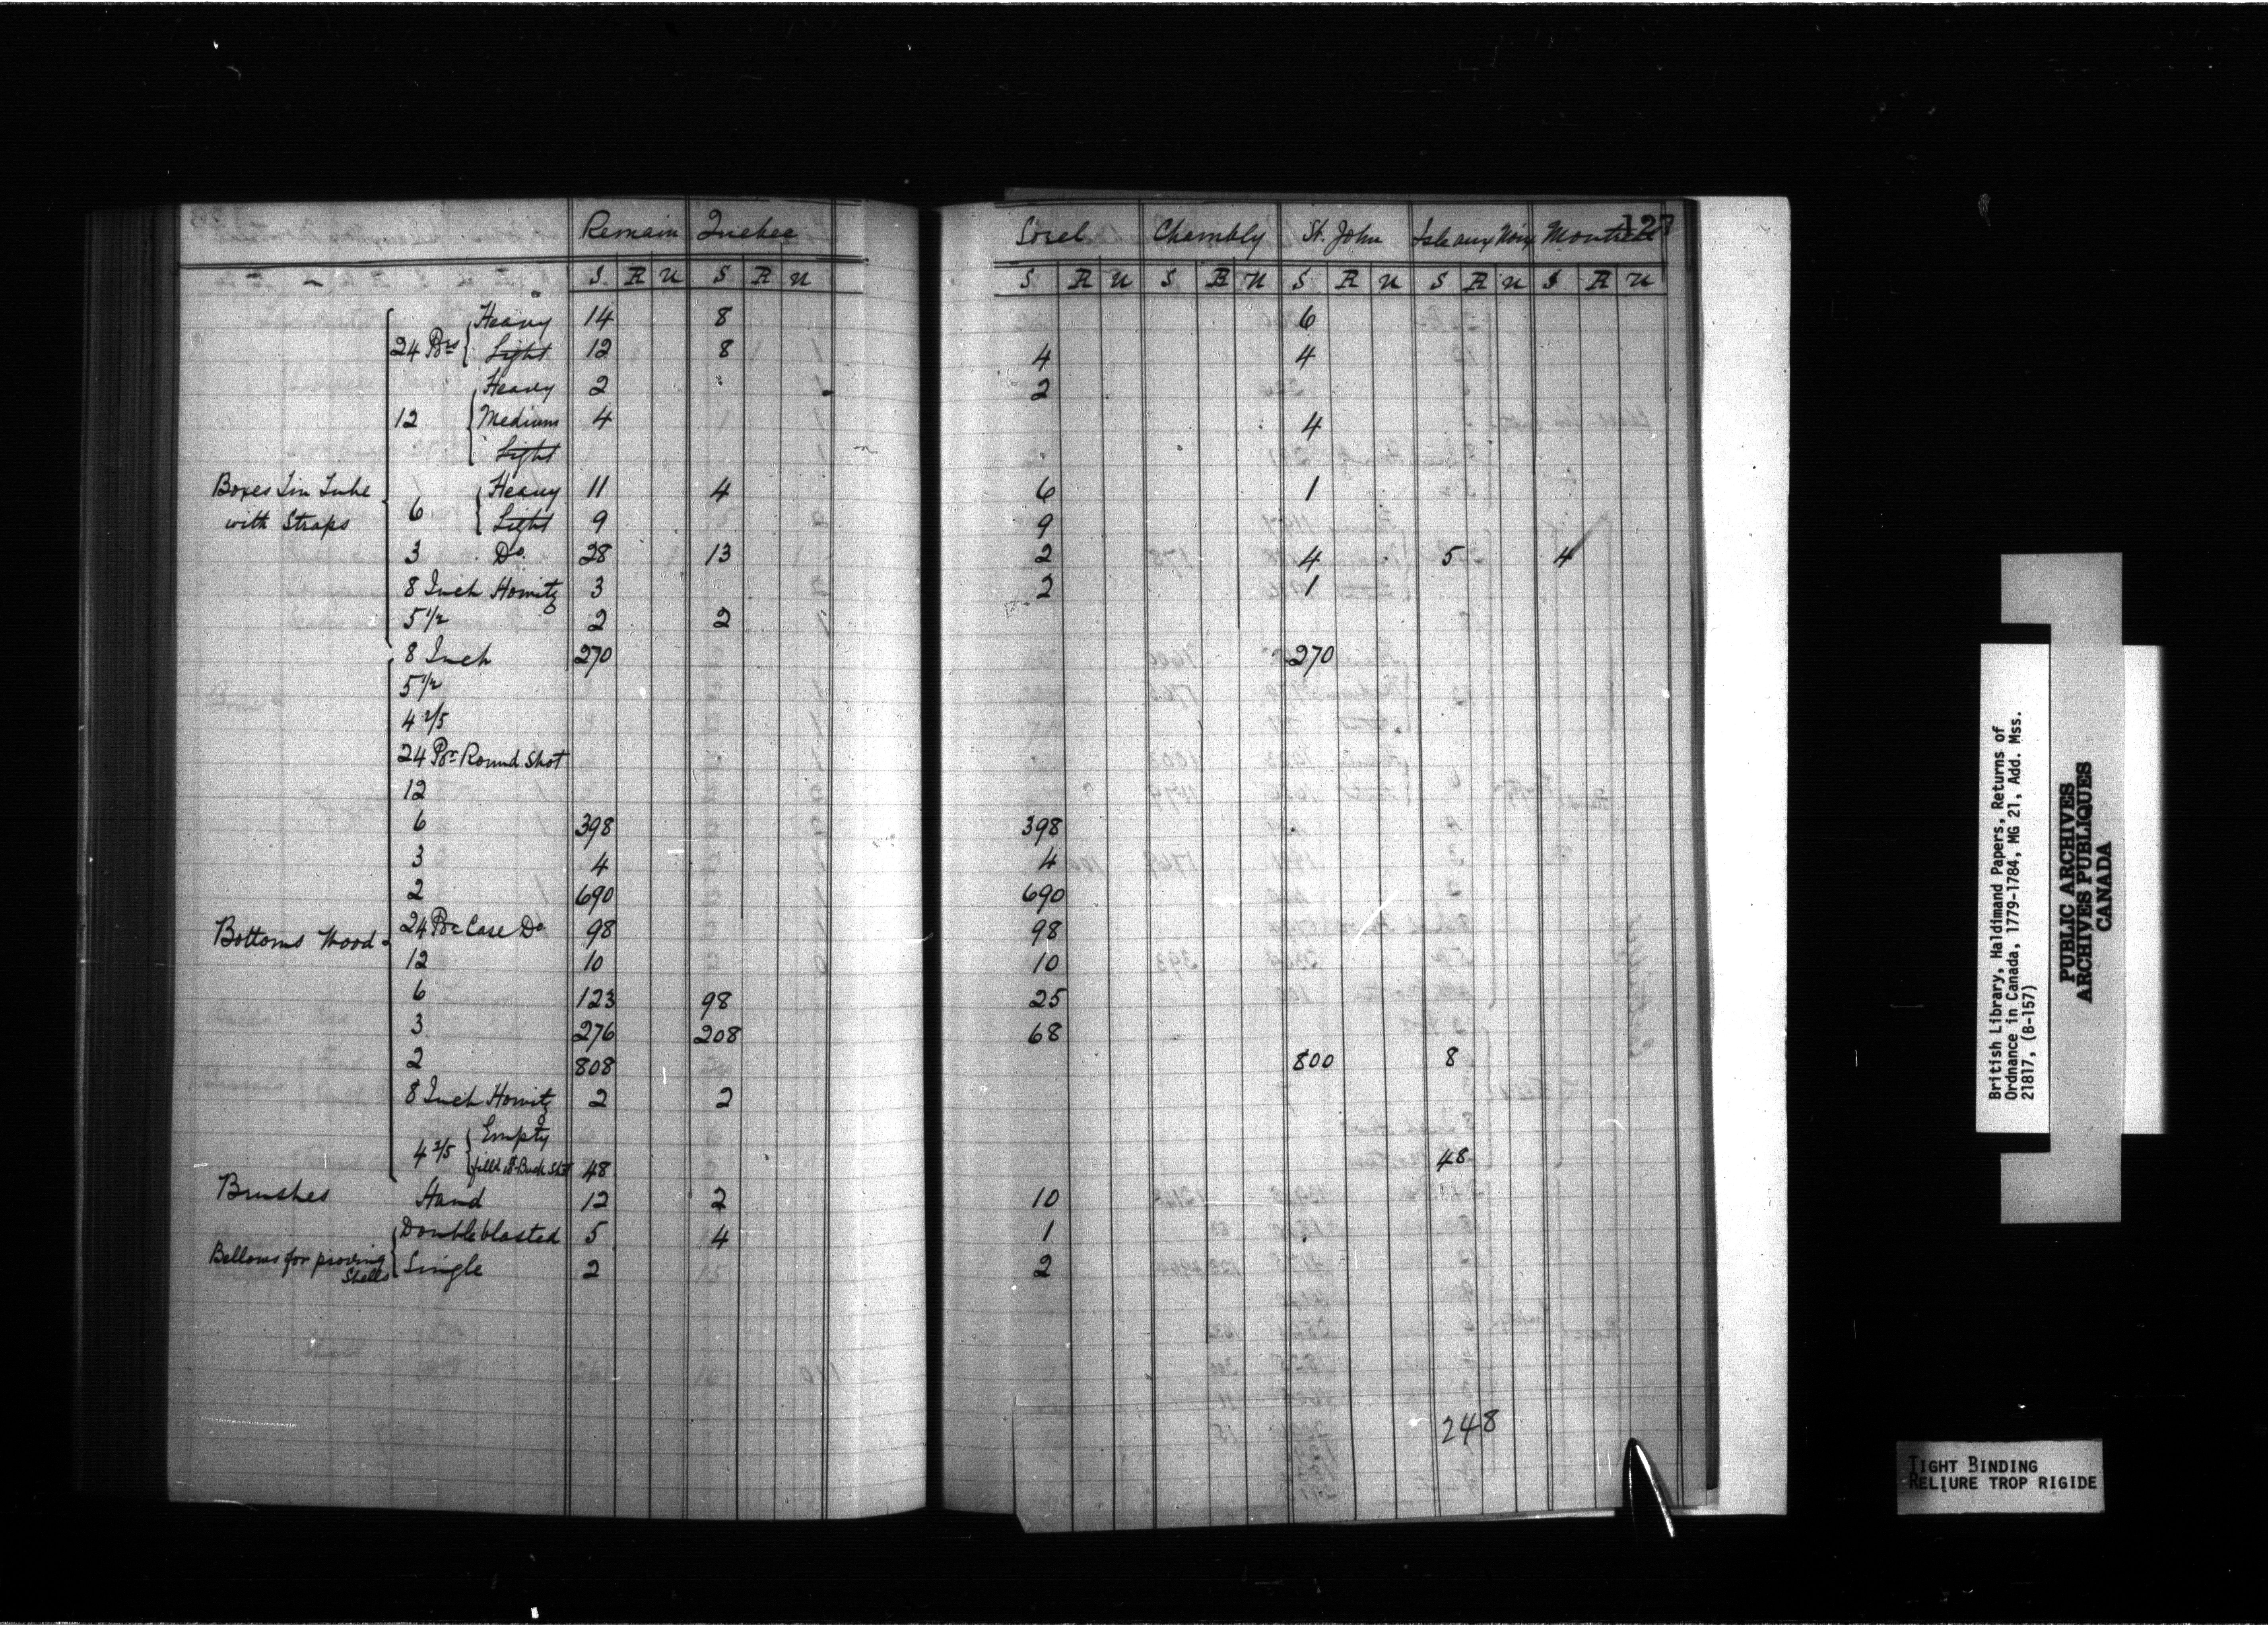 Remain Quebec Sorel Chambly St. John Isle aux Noix Montreal 127
S. R U S R U S R U S R U S R U S R U S R U
24 Prs { Heavy 14 8 6
Light 12 8 4 4
12 { Heavy 2 2
Medium 4 4
Light
Boxes Tin Tube with Straps
6 { Heavy 11 4 6 1
Light 9 9
3 Do. 28 13 2 4 5 4
8 Inch Howitz 3 2 1
5 1/2 2 2
8 Inch 270 270
5 1/2
4 2/5
24 Pr Round Shot
12
6 398 398
3 4 4
2 690 690
Bottoms Wood
24 Pr Case Do 98 98
12 10 10
6 123 98 25
3 276 208 68
2 808 800 8
8 Inch Howitz 2 2
4 2/5 { Empty
filld wt Buck Shot 48 48
Brushes Hand 12 2 10
Bellows for proving Shells { Double blasted 5 4 1
Single 2 2
248
British Library, Haldimand Papers, Returns of
Ordnance in Canada, 1779-1784, MG 21, Add. Mss.
21817, (B-157)
PUBLIC ARCHIVES
ARCHIVES PUBLIQUES
CANADA
TIGHT BINDING
RELIURE TROP RIGIDE